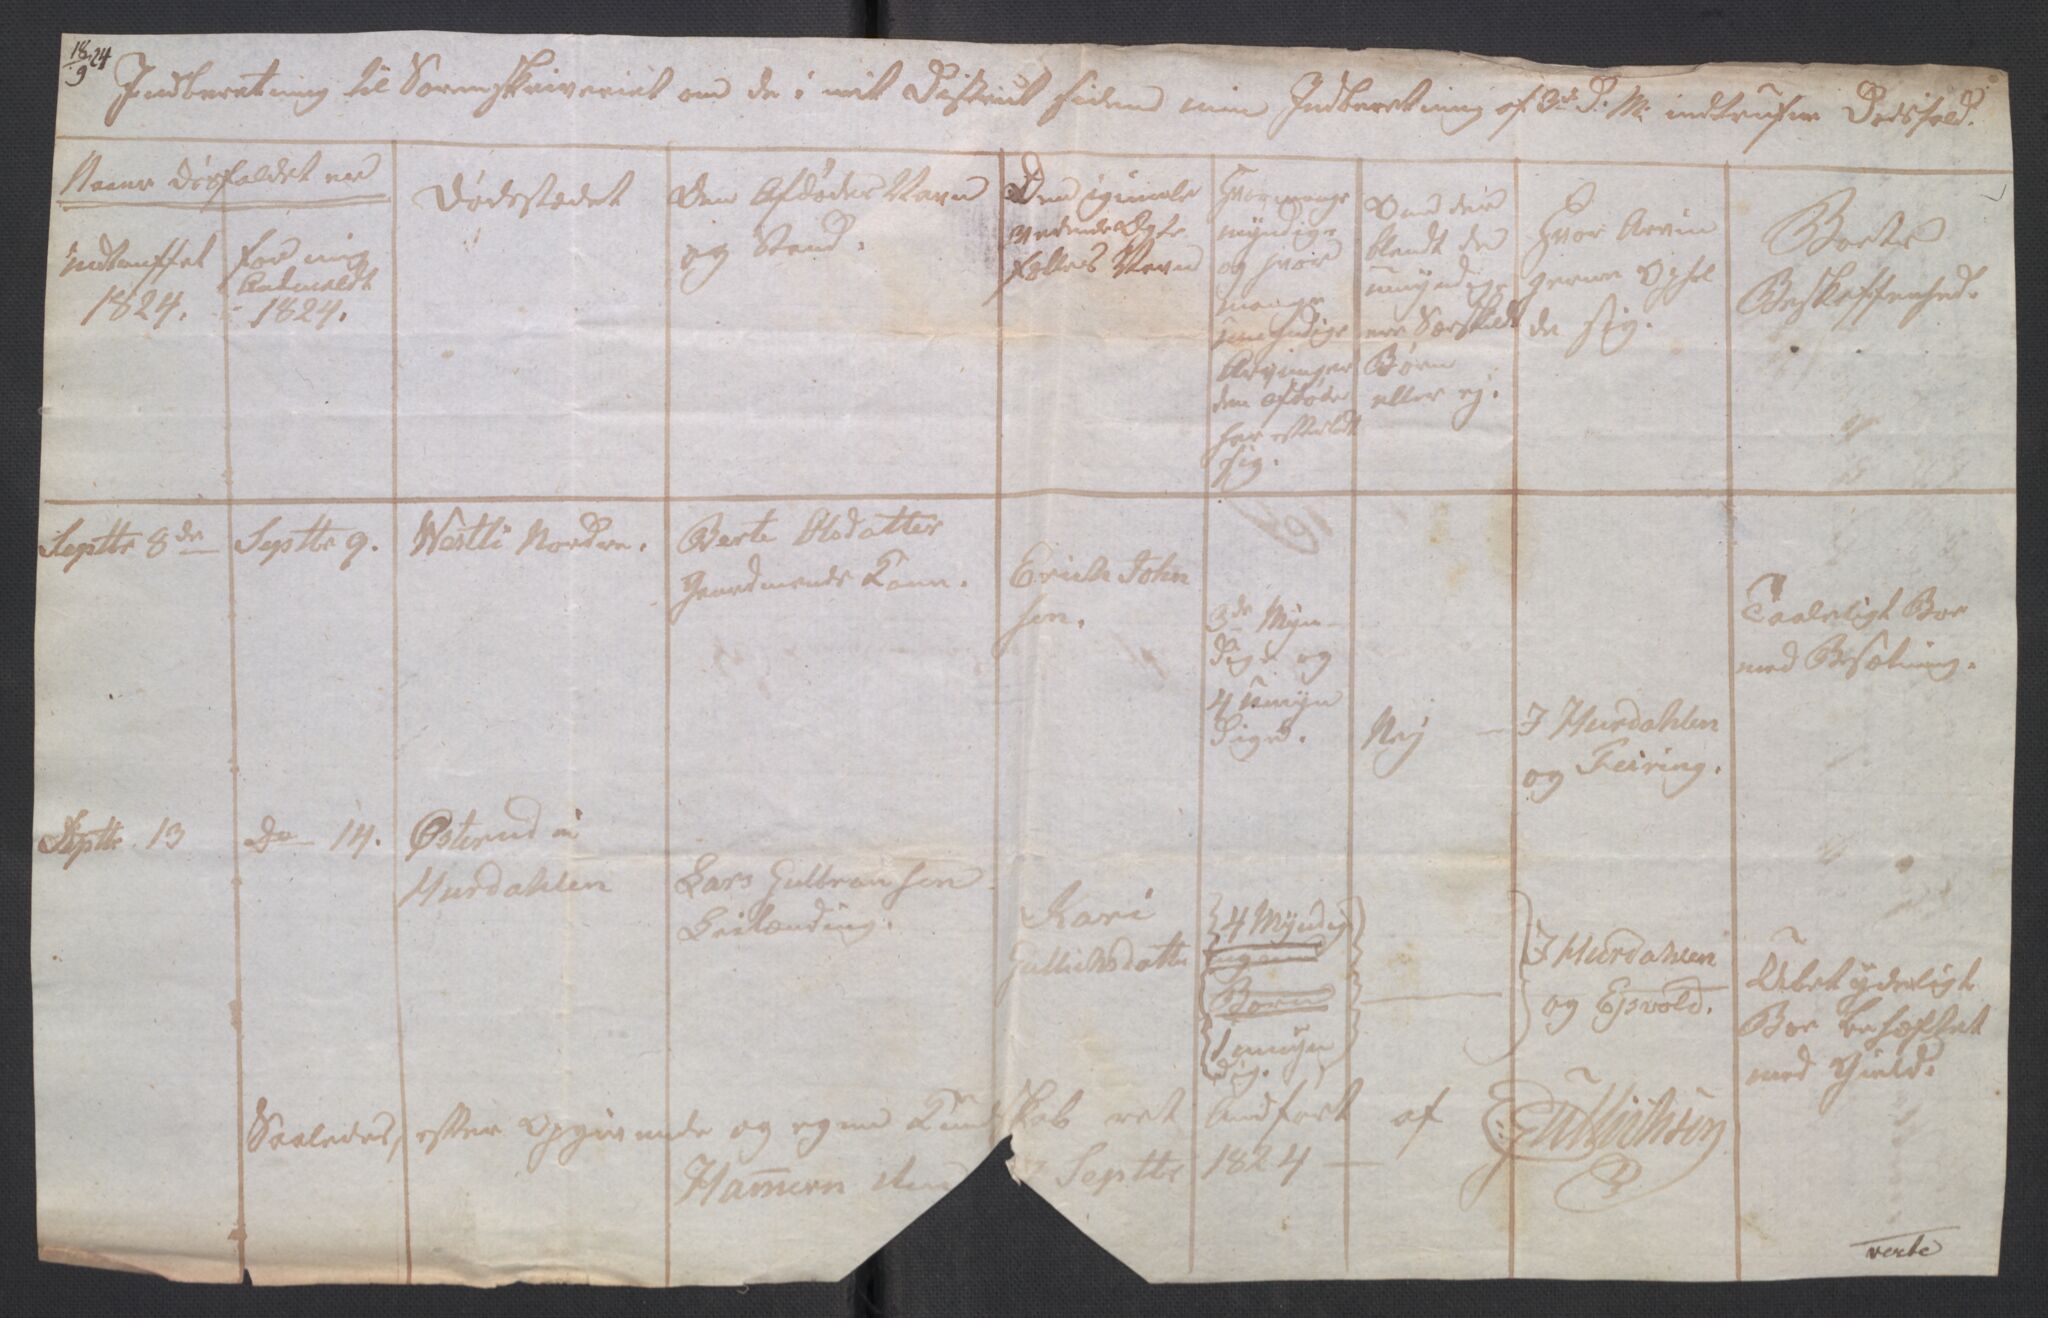 18/9 24
Indberetning til Sorenskriveriet om de i mit District siden min Indberetning af 3de d. M. indtrufne Dødsfald.
Naar Dødsfaldet er
indtruffet
1824.
for mig
Anmeldt
1824.
Dødsstædet
Den Afdødes Navn
og Stand.
Den igienle
vende Ægte
fælles Navn
Hvormange
myndige
og hvor
mange
umyndige
Arvinger
den afdøde
har efterladt
sig.
Om der
blandt de
umyndige
ere Særskilte
Børn
eller ej.
Hvor Arvin
gerne Ophol
de sig.
Boets
Beskaffenhed.
Septbr 8de
Septbr 9.
Westli Nordre.
Berte Olsdatter
Gaardmands Kone.
Erich John
sen.
3de Myn
dige og
4 Umyn
dige.
Nej
I Hurdahlen
og Feiring.
Taaleligt Boe
med Besætning.
Septbr. 13
Do 14.
Østerud i
Hurdahlen
Lars Gulbransen
Leilænding.
Kari
Gullichsdatter
4 Myndig
Børn
1 umyn
dig.
I Hurdahlen
og Ejsvold.
Ubetyderligt
Boe behæftet
med Gield.
Saaledes, efter Opgivende og egen Kundskab ret Andført af
Gullichsen
Hammern den Septbr 1824
verte